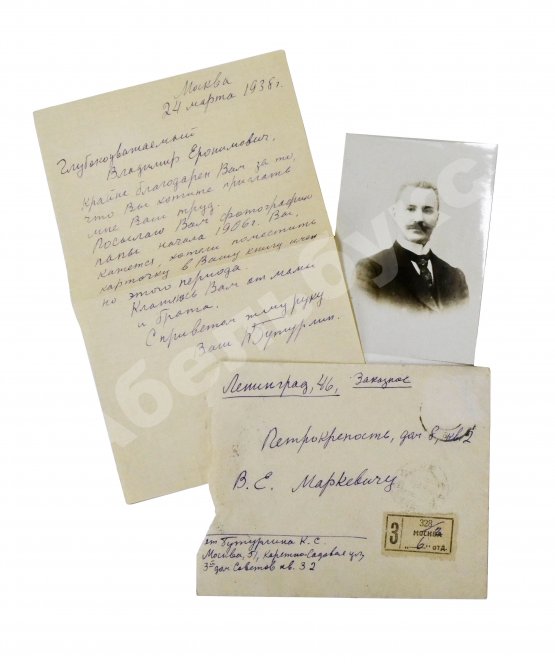 Москва
24 марта 1938г.
Глубокоуважаемый
Владимир Еронимович,
Крайне благодарен Вам за то,
что Вы хотите прислать
мне Ваш труд.
Посылаю Вам фотографию
папы начала 1906г. Вы,
кажется, хотели поместить
карточку в Вашу книгу имен
но этого периода
Кланяюсь Вам от мамы
и брата.
С приветом жму руку
Ваш Бутурлин.
Ленинград, 46, Заказное
Петрокрепость, дом 8, кв 2
В. Е. Маркевичу
от Бутурлина К. С.
Москва, 51, Каретно-Садовая ул,
3й дом Советов кв. 32
З
328
МОСКВА
6 ОТД.